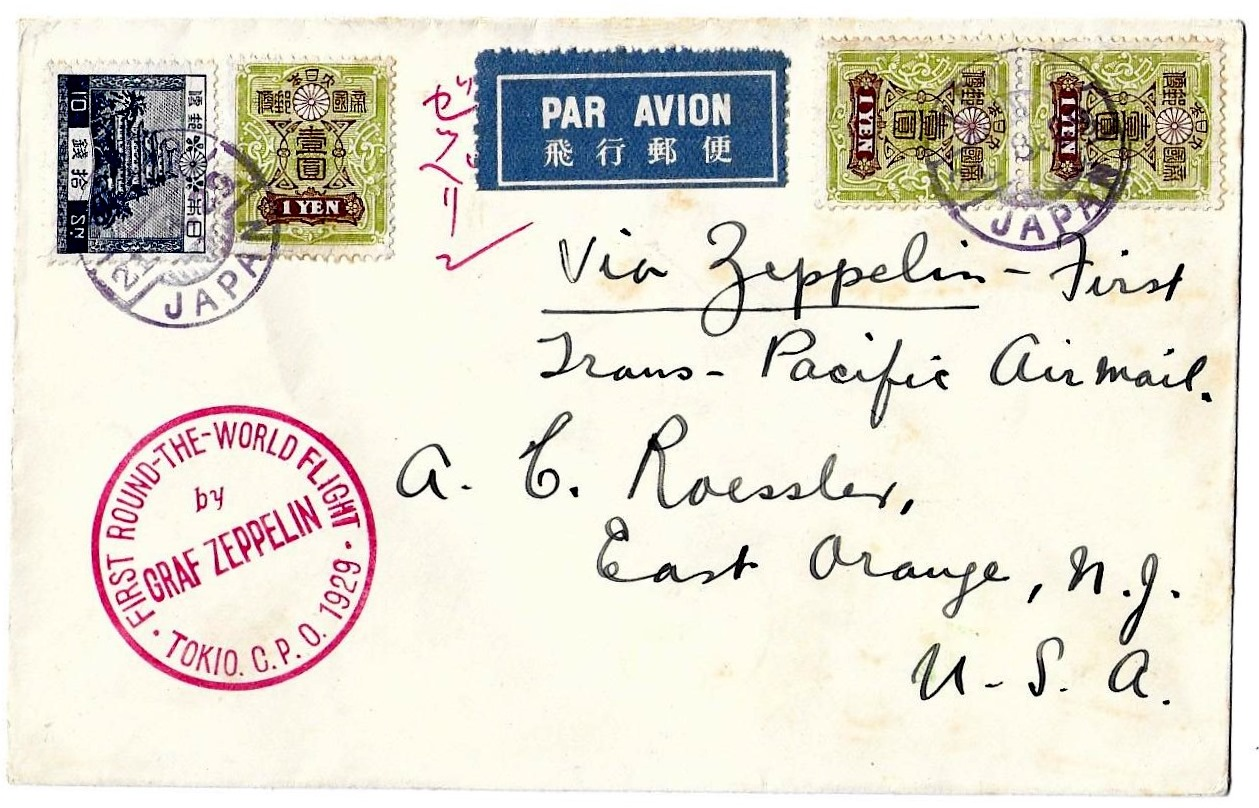 10 銭拾 Sn.
日本郵便
大日本帝國郵便
壹圓
1 YEN
JAPAN
ゼツペリン
PAR AVION
飛行郵便
大日本帝國郵便
壹圓
1 YEN
大日本帝國郵便
壹圓
1 YEN
JAPAN
Via Zeppelin - First
Trans - Pacific Air Mail.
A. C. Roessler,
East Orange, N.J.
U. S. A.
FIRST ROUND-THE-WORLD FLIGHT
by
GRAF ZEPPELIN
TOKIO. C. P. O. 1929